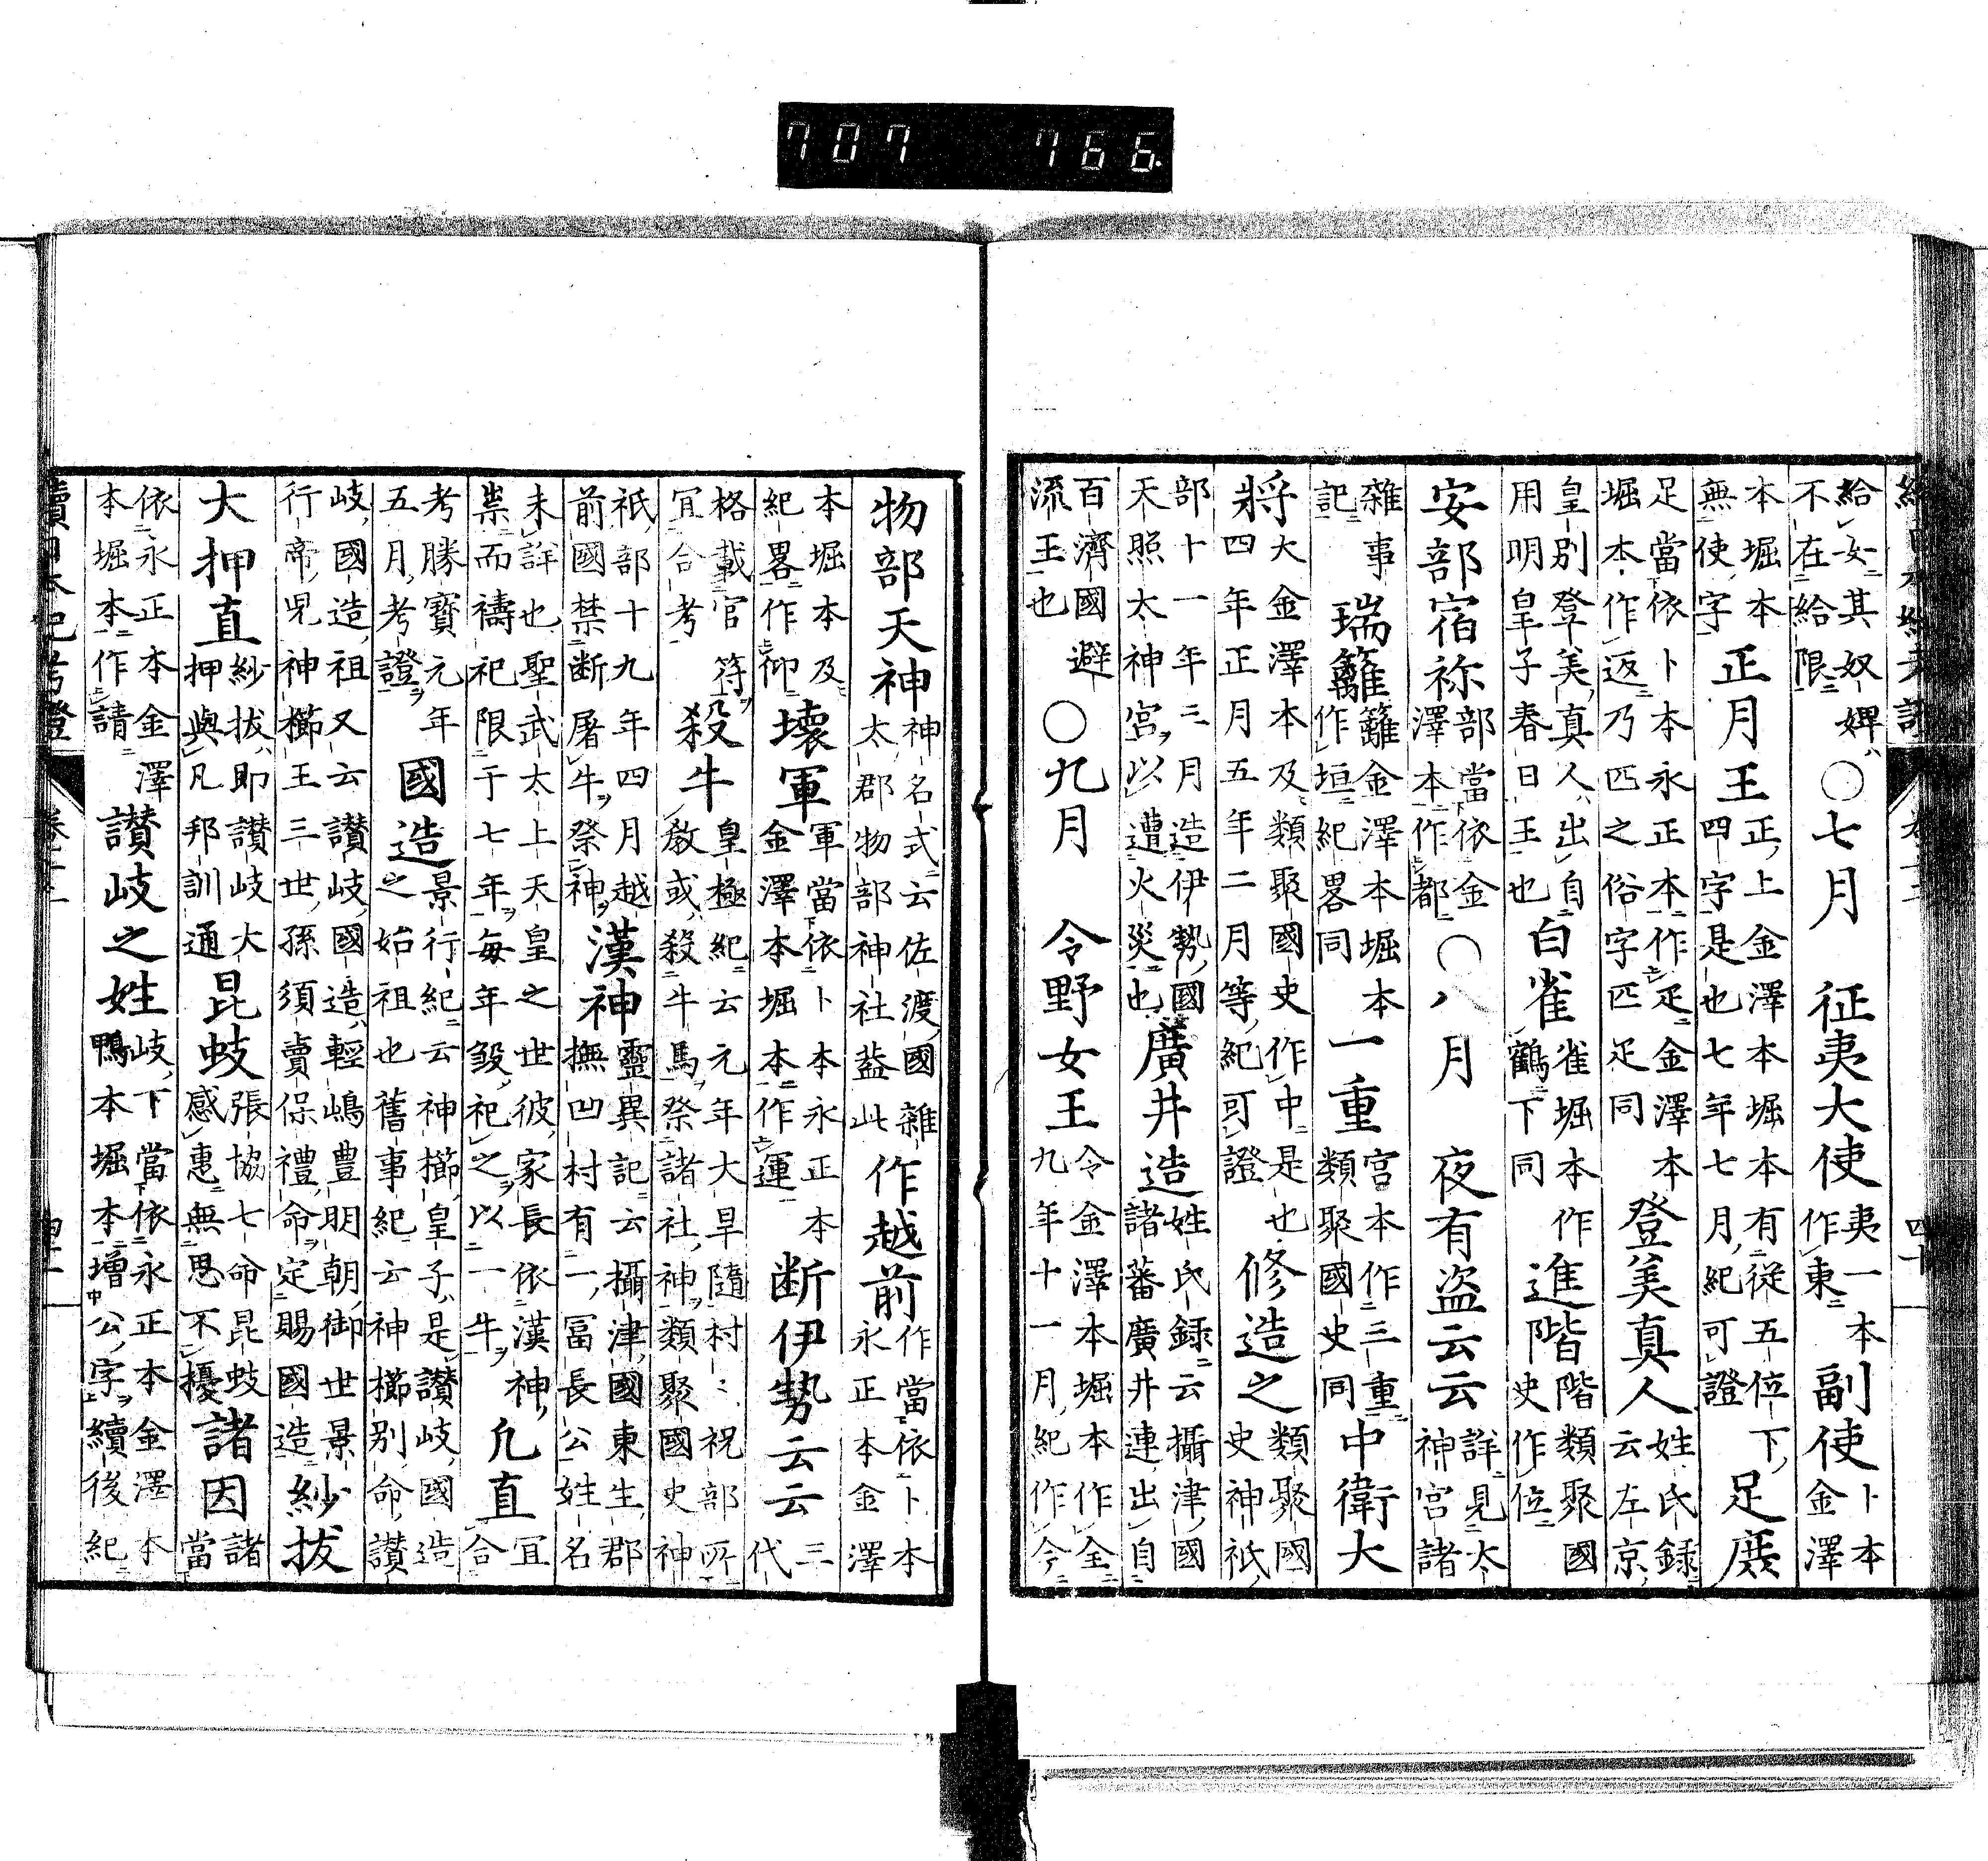 707 766
給女其奴婢
不在給限
○七月
征夷大使
夷一本
作東
副使
卜本
金澤
本堀本
無使字
正月王
正上金澤本堀本有從五位下
四字是也七年七月紀可證
足廣
足當依卜本永正本作疋金澤本
堀本作返乃匹之俗字匹疋同
登美真人
姓氏録
云左京
皇別登美真人出自
用明皇子春日王也
白雀
雀堀本作
鶴下同
進階
階類聚國
史作位
安部宿祢
部當依金
澤本作都
○八月
夜有盜云云
詳見太
神宮諸
雜事
記
瑞籬
籬金澤本堀本
作垣紀畧同
一重
宮本作三重
類聚國史同
中衛大
將
大金澤本及類聚國史作中是也
四年正月五年二月等紀可證
修造之
類聚國
史神祇
部十一年三月造伊勢國
天照太神宮以遭火災也
廣井造
姓氏録云攝津國
諸蕃廣井連出自
百濟國避
流王也
○九月
令野女王
令金澤本堀本作全
九年十一月紀作今
物部天神
神名式云佐渡國雜
太郡物部神社葢此
作越前
作當依卜本
永正本金澤
本堀本及
紀畧作仰
壞軍
軍當依卜本永正本
金澤本堀本作運
断伊勢云云
三
代
格載官符
宜合考
殺牛
皇極紀云元年大旱隨村々祝部所
教或殺牛馬祭諸社神類聚國史神
祇部十九年四月越
前國禁断屠牛祭神
漢神
靈異記云攝津國東生郡
撫凹村有一冨長公姓名
未詳也聖武太上天皇之世彼家長依漢神
祟而禱祀限于七年每年殺祀之以一牛
凡直
宜
合
考勝寶元年
五月考證
國造
景行紀云神櫛皇子是讃岐國造
之始祖也舊事紀云神櫛別命讃
岐國造祖又云讃岐國造輕嶋豊明朝御世景
行帝兒神櫛王三世孫須賣保禮命定賜國造
紗拔
大押直
紗拔即讃岐大
押與凡邦訓通
昆蚑
張協七命昆蚑
感惠無思不擾
諸因
諸
當
依永正本金澤
本堀本作請
讃岐之姓
岐下當依永正本金澤本
鴨本堀本増公字續後紀